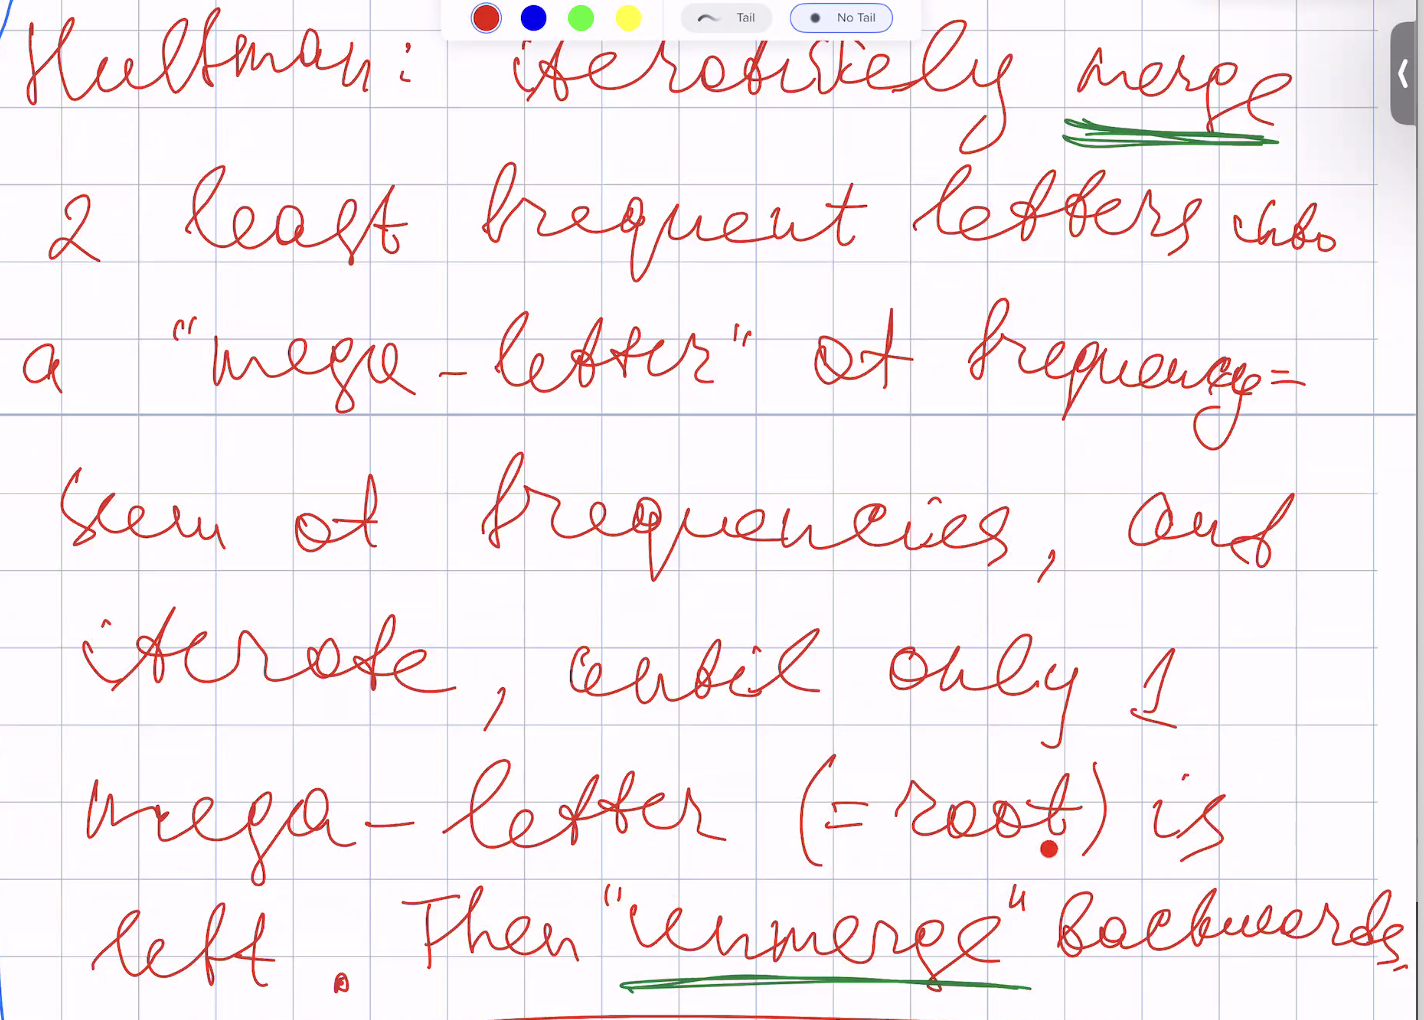 Tail No Tail
Huffman: iteratively merge
2 least frequent letters into
a "mega-letter" of frequency=
sum of frequencies, and
iterate, until only 1
mega-letter (=root) is
left. Then "unmerge" backwards